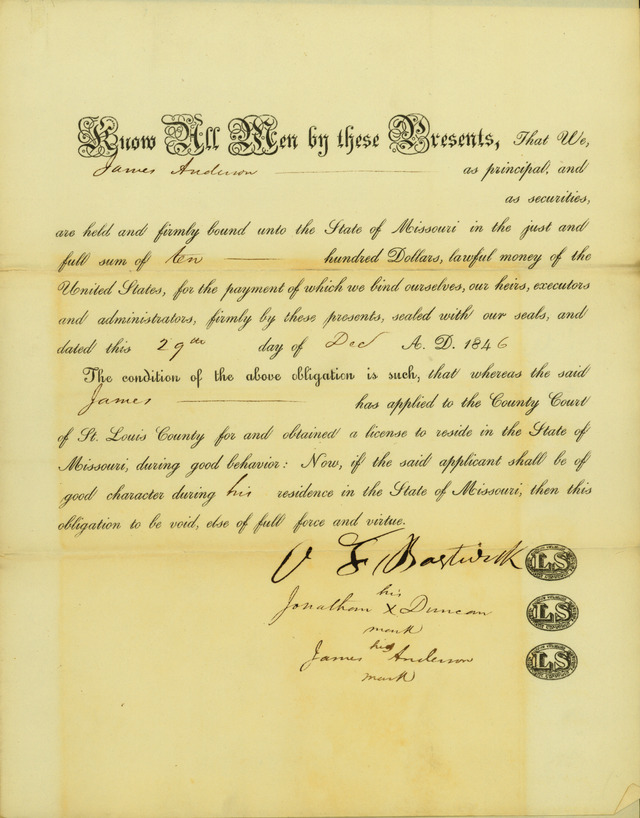 Know All Men by these Presents, That We,
James Anderson as principal, and
as securities,
are held and firmly bound unto the State of Missouri in the just and
full sum of ten hundred Dollars, lawful money of the
United States, for the payment of which we bind ourselves, our heirs, executors
and administrators, firmly by these presents, sealed with our seals, and
dated this 29th day of Dec A. D. 1846
The condition of the above obligation is such, that whereas the said
James has applied to the County Court
of St. Louis County for and obtained a license to reside in the State of
Missouri, during good behavior: Now, if the said applicant shall be of
good character during his residence in the State of Missouri, then this
obligation to be void, else of full force and virtue.
LS
his
Jonathan X Duncan
mark
LS
his
James Anderson
mark
LS